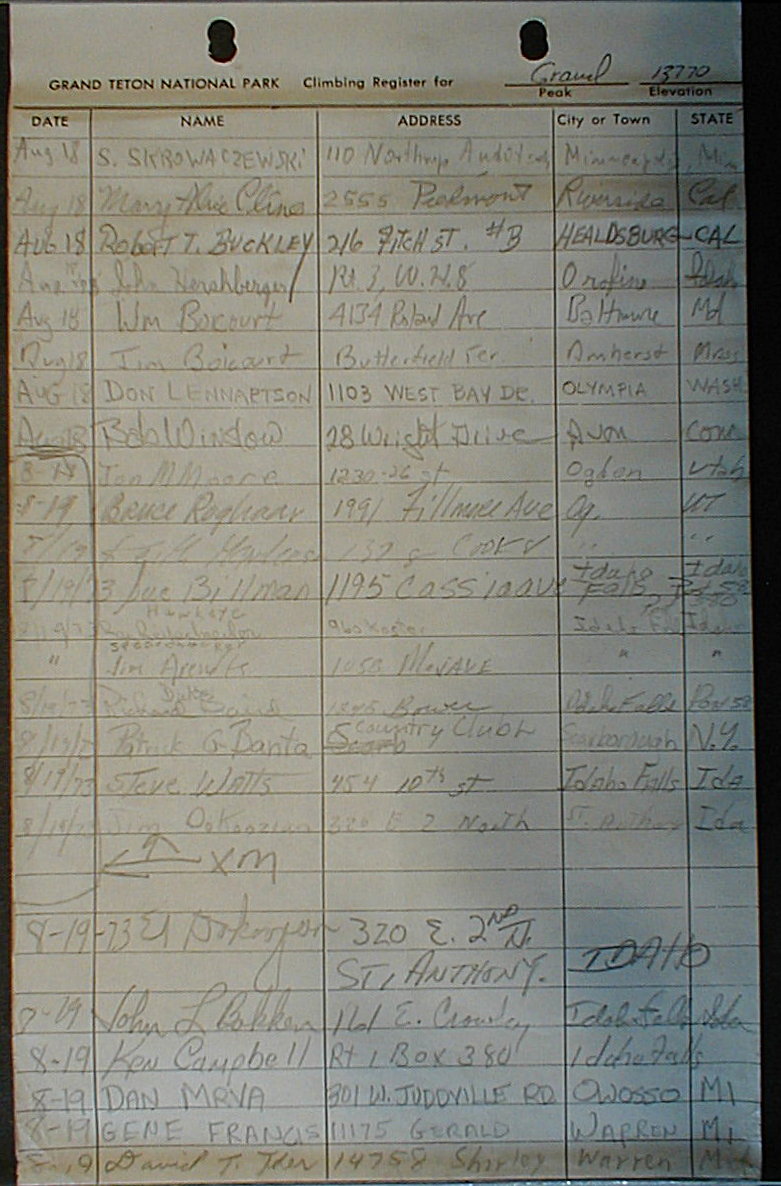 GRAND TETON NATIONAL PARK Climbing Register for Grand 13770
Peak Elevation
DATE NAME ADDRESS City or Town STATE
Aug 18 S. SKROWACZEWSKI 110 Northrup Minneapolis, Min
Aug 18 Mary Alice Cline 2555 Piedmont Riverside Cal
AUG 18 ROBERT T. BUCKLEY 216 FITCH ST. #B HEALDSBURG CAL
John Hershberger Rt. 3, Orofino Idaho
Aug 18 Wm Boicourt 4134 Roland Ave Baltimore Md
Aug 18 Jim Boicourt Butterfield Ter Amherst Mass
AUG 18 DON LENNARTSON 1103 WEST BAY DR. OLYMPIA WASH.
Aug 18 Bob Winslow 28 Wright Drive Avon Conn
8-18 M Moore 1230-26 st Ogden Utah
8-19 Bruce 1991 Fillmore Ave Og. UT
" "
8/19/73 Billman 1195 Cassia ave Idaho Falls, Idaho
Hawkeye
8/19/73 960 Idaho Falls Idaho
" Jim 1058 MOJAVE " "
Duke
8/19/73 Richard Baird Bower Idaho Falls
8/19/73 Patrick G. Banta Country Club Scarborough N.Y.
8/19/73 Steve Watts 454 10th st Idaho Falls Ida
8/19/73 Jim 320 E 2 North St. Anthony Ida
8-19-73 320 E. 2ND N.
ST. ANTHONY. IDAHO
8-19 John L Bakken 161 E. Crowley Idaho Falls Ida
8-19 Ken Campbell Rt 1 Box 380 Idaho Falls
8-19 DAN MRVA 301 W. JUDDVILLE RD OWOSSO MI
8-19 GENE FRANCIS 11175 GERALD WARREN MI
8-19 David T. 14758 Shirley Warren